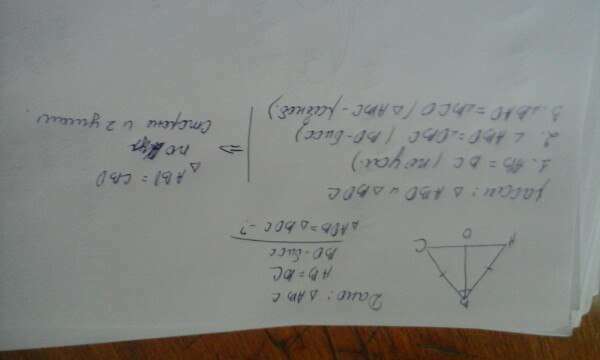 Дано: △ABC
AB = BC
BD - бисс
△ABD = △BDC - ?
рассм: △ABD и △BDC
1. AB = BC (по усл.)
2. ∠ABD = ∠CBD (BD - бисс)
3. ∠BAD = ∠BCD (△ABC - равноб.)
⇒ △ABD = CBD
по
стороне и 2 углам.
B
A
D
C